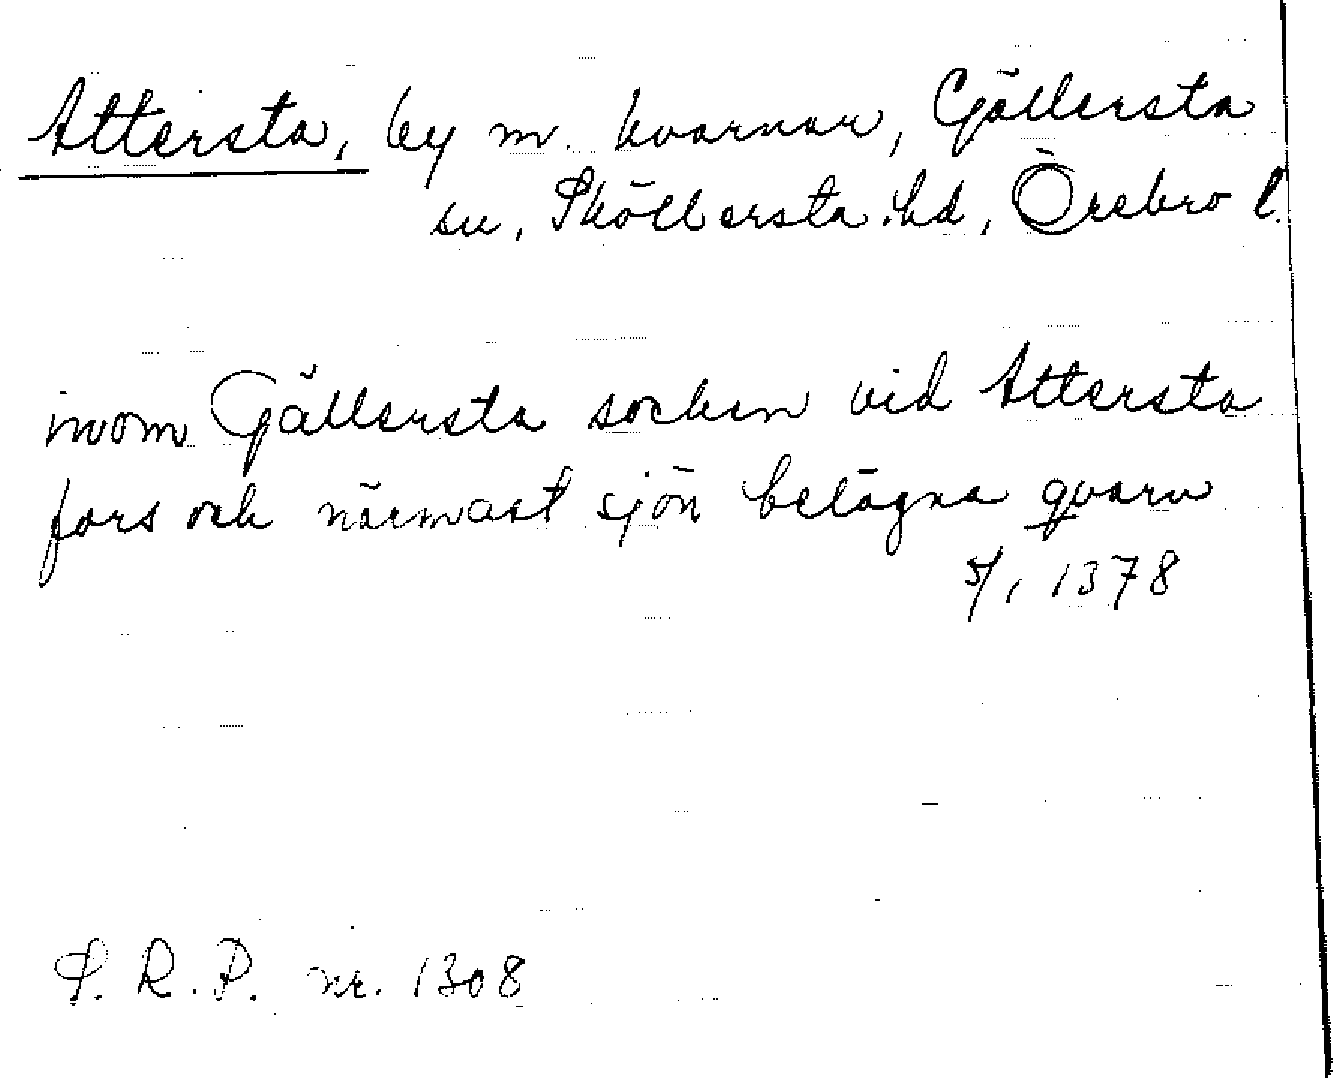 Attersta, by m. kvarnar, Gällersta
sn, Sköllersta hd, Örebro l.
inom Gällersta socken vid Attersta
fors och närmast sjön belägna qvarn
5/1 1378
S. R. P. nr. 1308